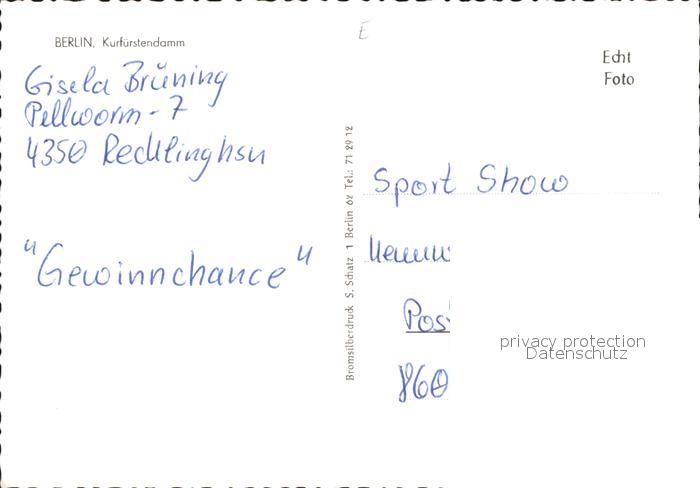 BERLIN, Kurfürstendamm
E
Echt
Foto
Gisela Brüning
Pellworm-7
4350 Recklinghsn
"Gewinnchance"
Bromsilberdruck S. Schatz 1 Berlin 62 Tel.: 71 29 12
Sport Show
Pos
860
privacy protection
Datenschutz